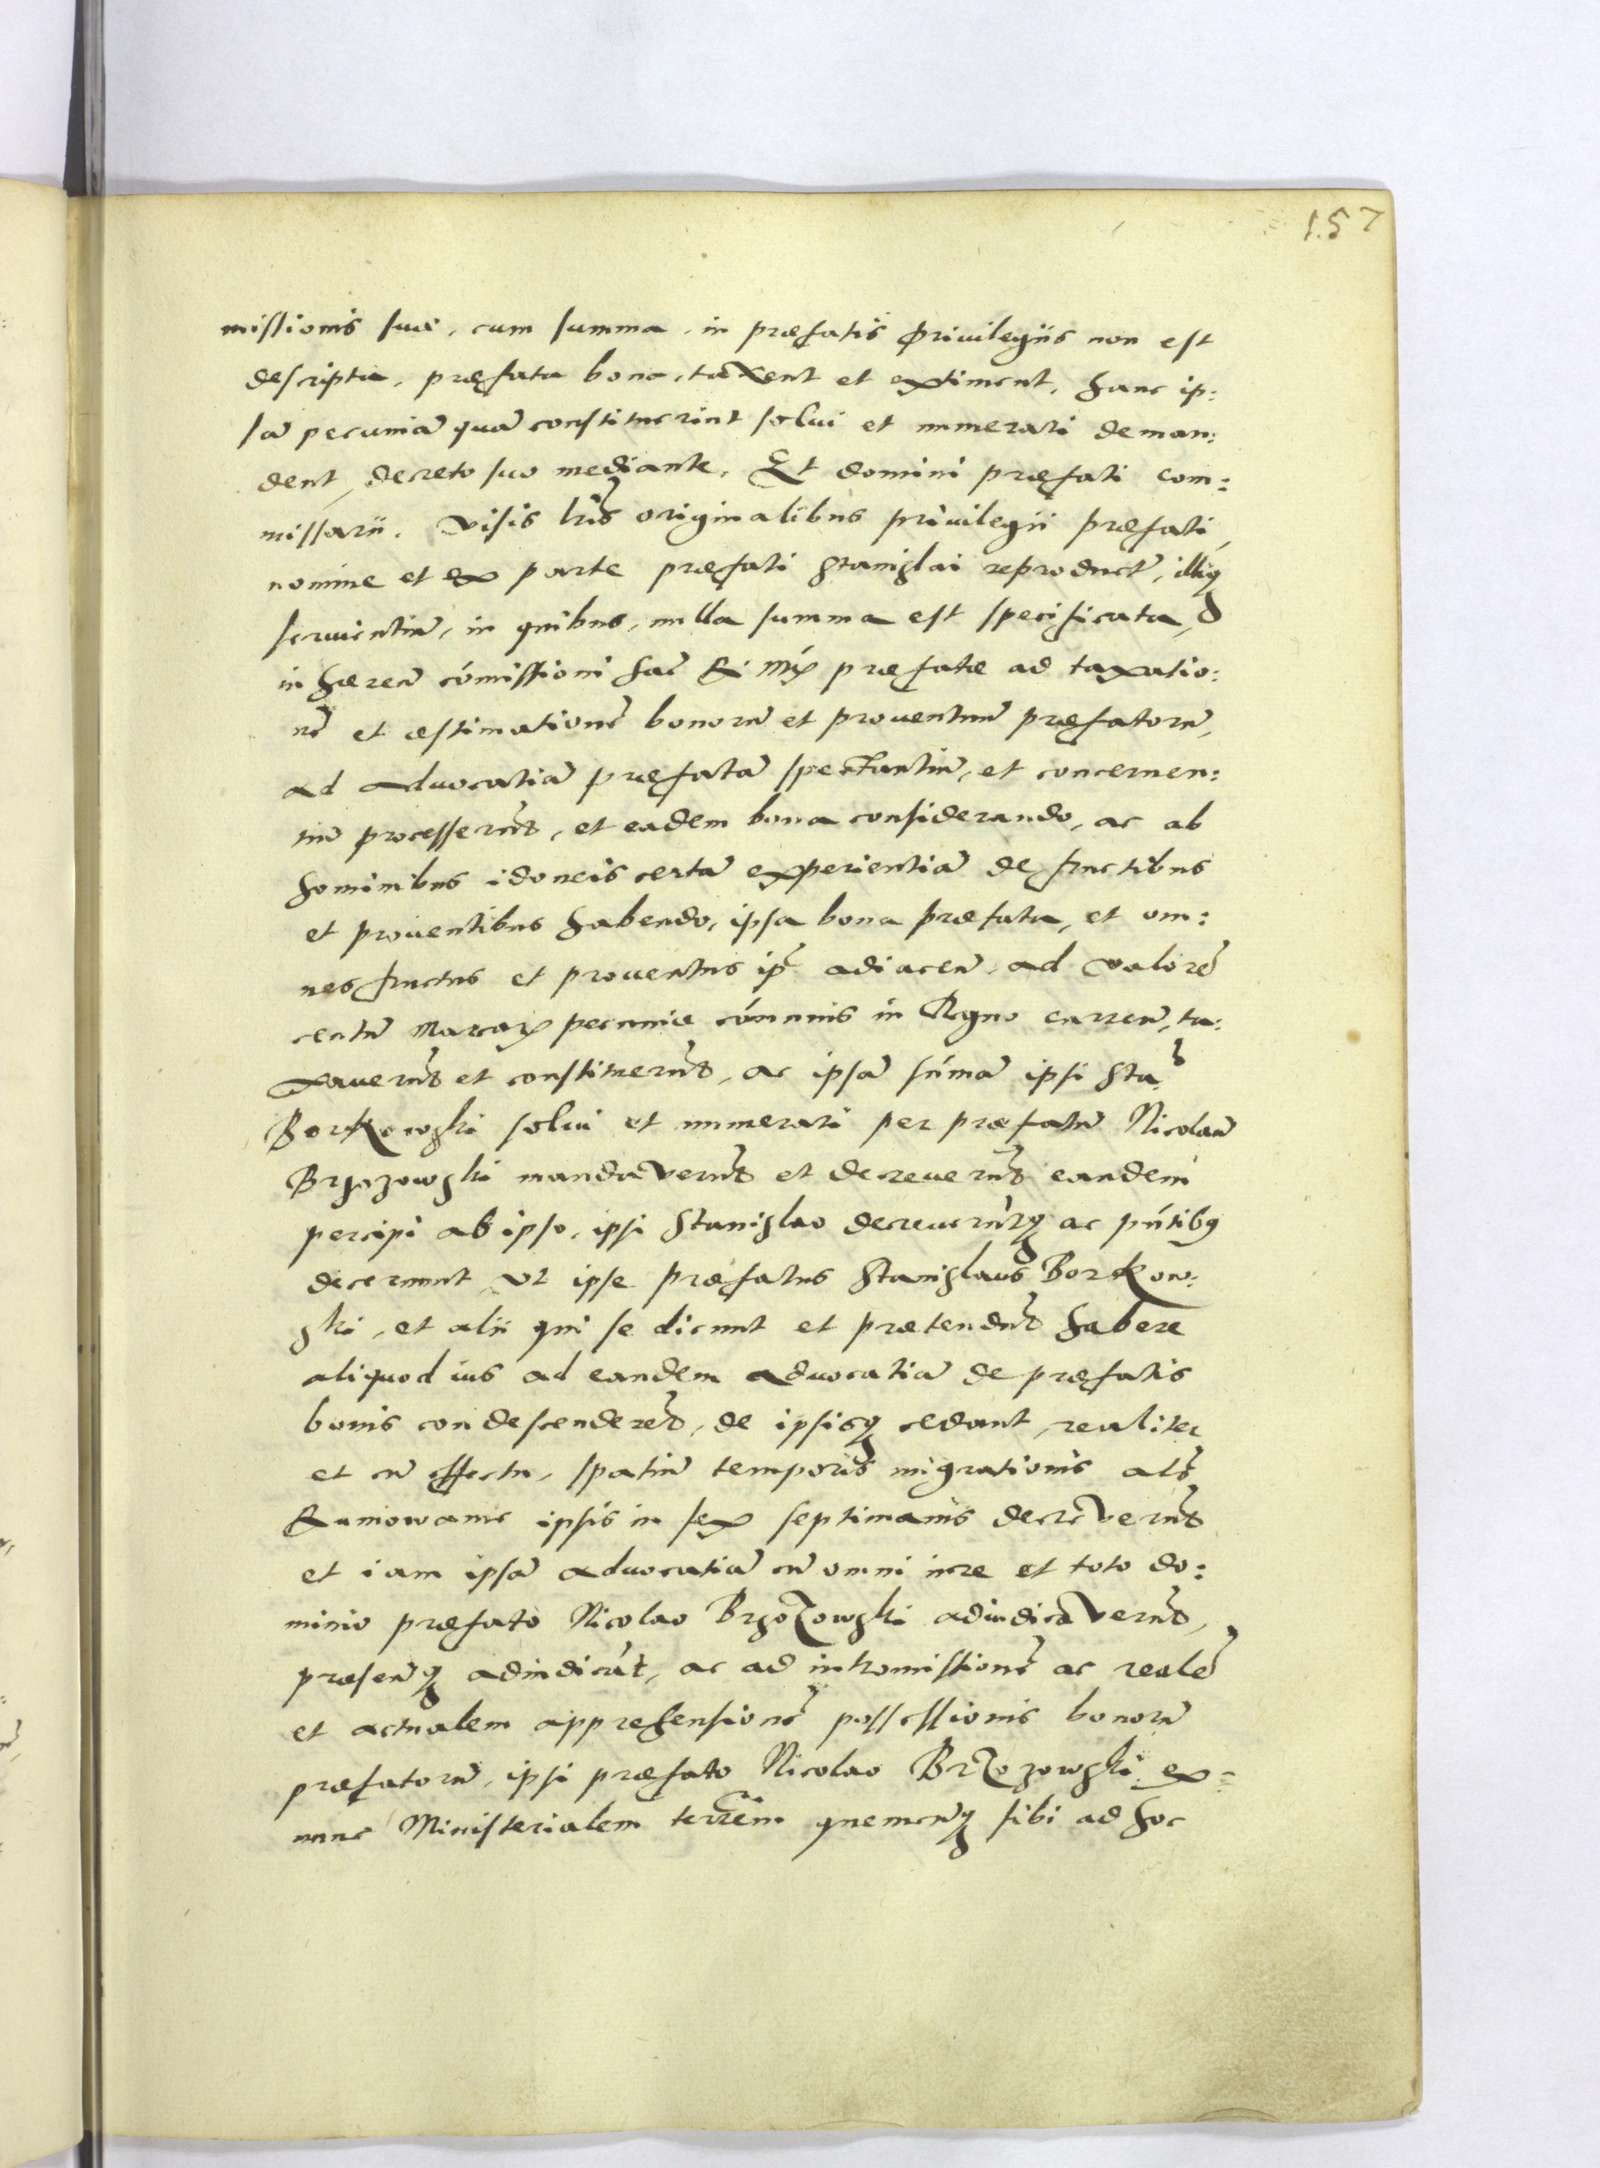 157
missionis suæ, cum summa, in præfatis Privilegiis non est
descripta, præfata bona, taxent et extiment, hanc ip:
sã pecuniã quã constituerint solui et numerari deman:
dent, decreto suo mediante. Et domini præfati com:
missarii. Visis lris originalibus priuilegii præfati,
nomine et ex parte præfati Stanislai reproduct, illiq
seruientiũ, in quibus, nulla summa est specificata,
in hæreñ cómissioni Sac R Mtis præfatæ ad taxatio:
nẽ et æstimationẽ bonorũ et prouentuum præfatorũ,
ad aduocatiã præfatã spectantiũ, et concernen:
tiũ processerũt, et eadem bona considerando, ac ab
hominibus idoneis certã experientiã de fructibus
et prouentibus habendo, ipsa bona præfata, et om:
nes fructus et prouentus ip̃ adiaceñ, ad valorẽ
centũ Marcarũ pecuniæ cómunis in Regno curreñ, ta:
xauerũt et constituerũt, ac ipsã sũmã ipsi Sta:
Borkowski solui et numerari per præfatũ Nicolaũ
Brzozowski mandaverũt et decreuerũt eandem
percipi ab ipso, ipsi Stanislao decreuerũtq ac pñtibq
decernunt, vt ipse præfatus Stanislaus Borkow:
ski, et alii qui se dicunt et prætendũt habere
aliquod ius ad eandem aduocatiã de præfatis
bonis condescenderẽt, de ipsisq cedant, realiter
et cũ effectu, spatiũ temporis migrationis als
Rumowanie ipsis in sex septimanis decreverũt
et iam ipsã aduocatiã cũ omni iure et toto do:
minio præfato Nicolao Brzozowski adiudicaverũt,
præseñq adiudicãt, ac ad intromissionẽ ac realẽ
et actualem apprehensionẽ possessionis bonorũ
præfatorũ, ipsi præfato Nicolao Brzozowski ex:
nunc Ministerialem terrẽm quemcũq sibi ad hoc